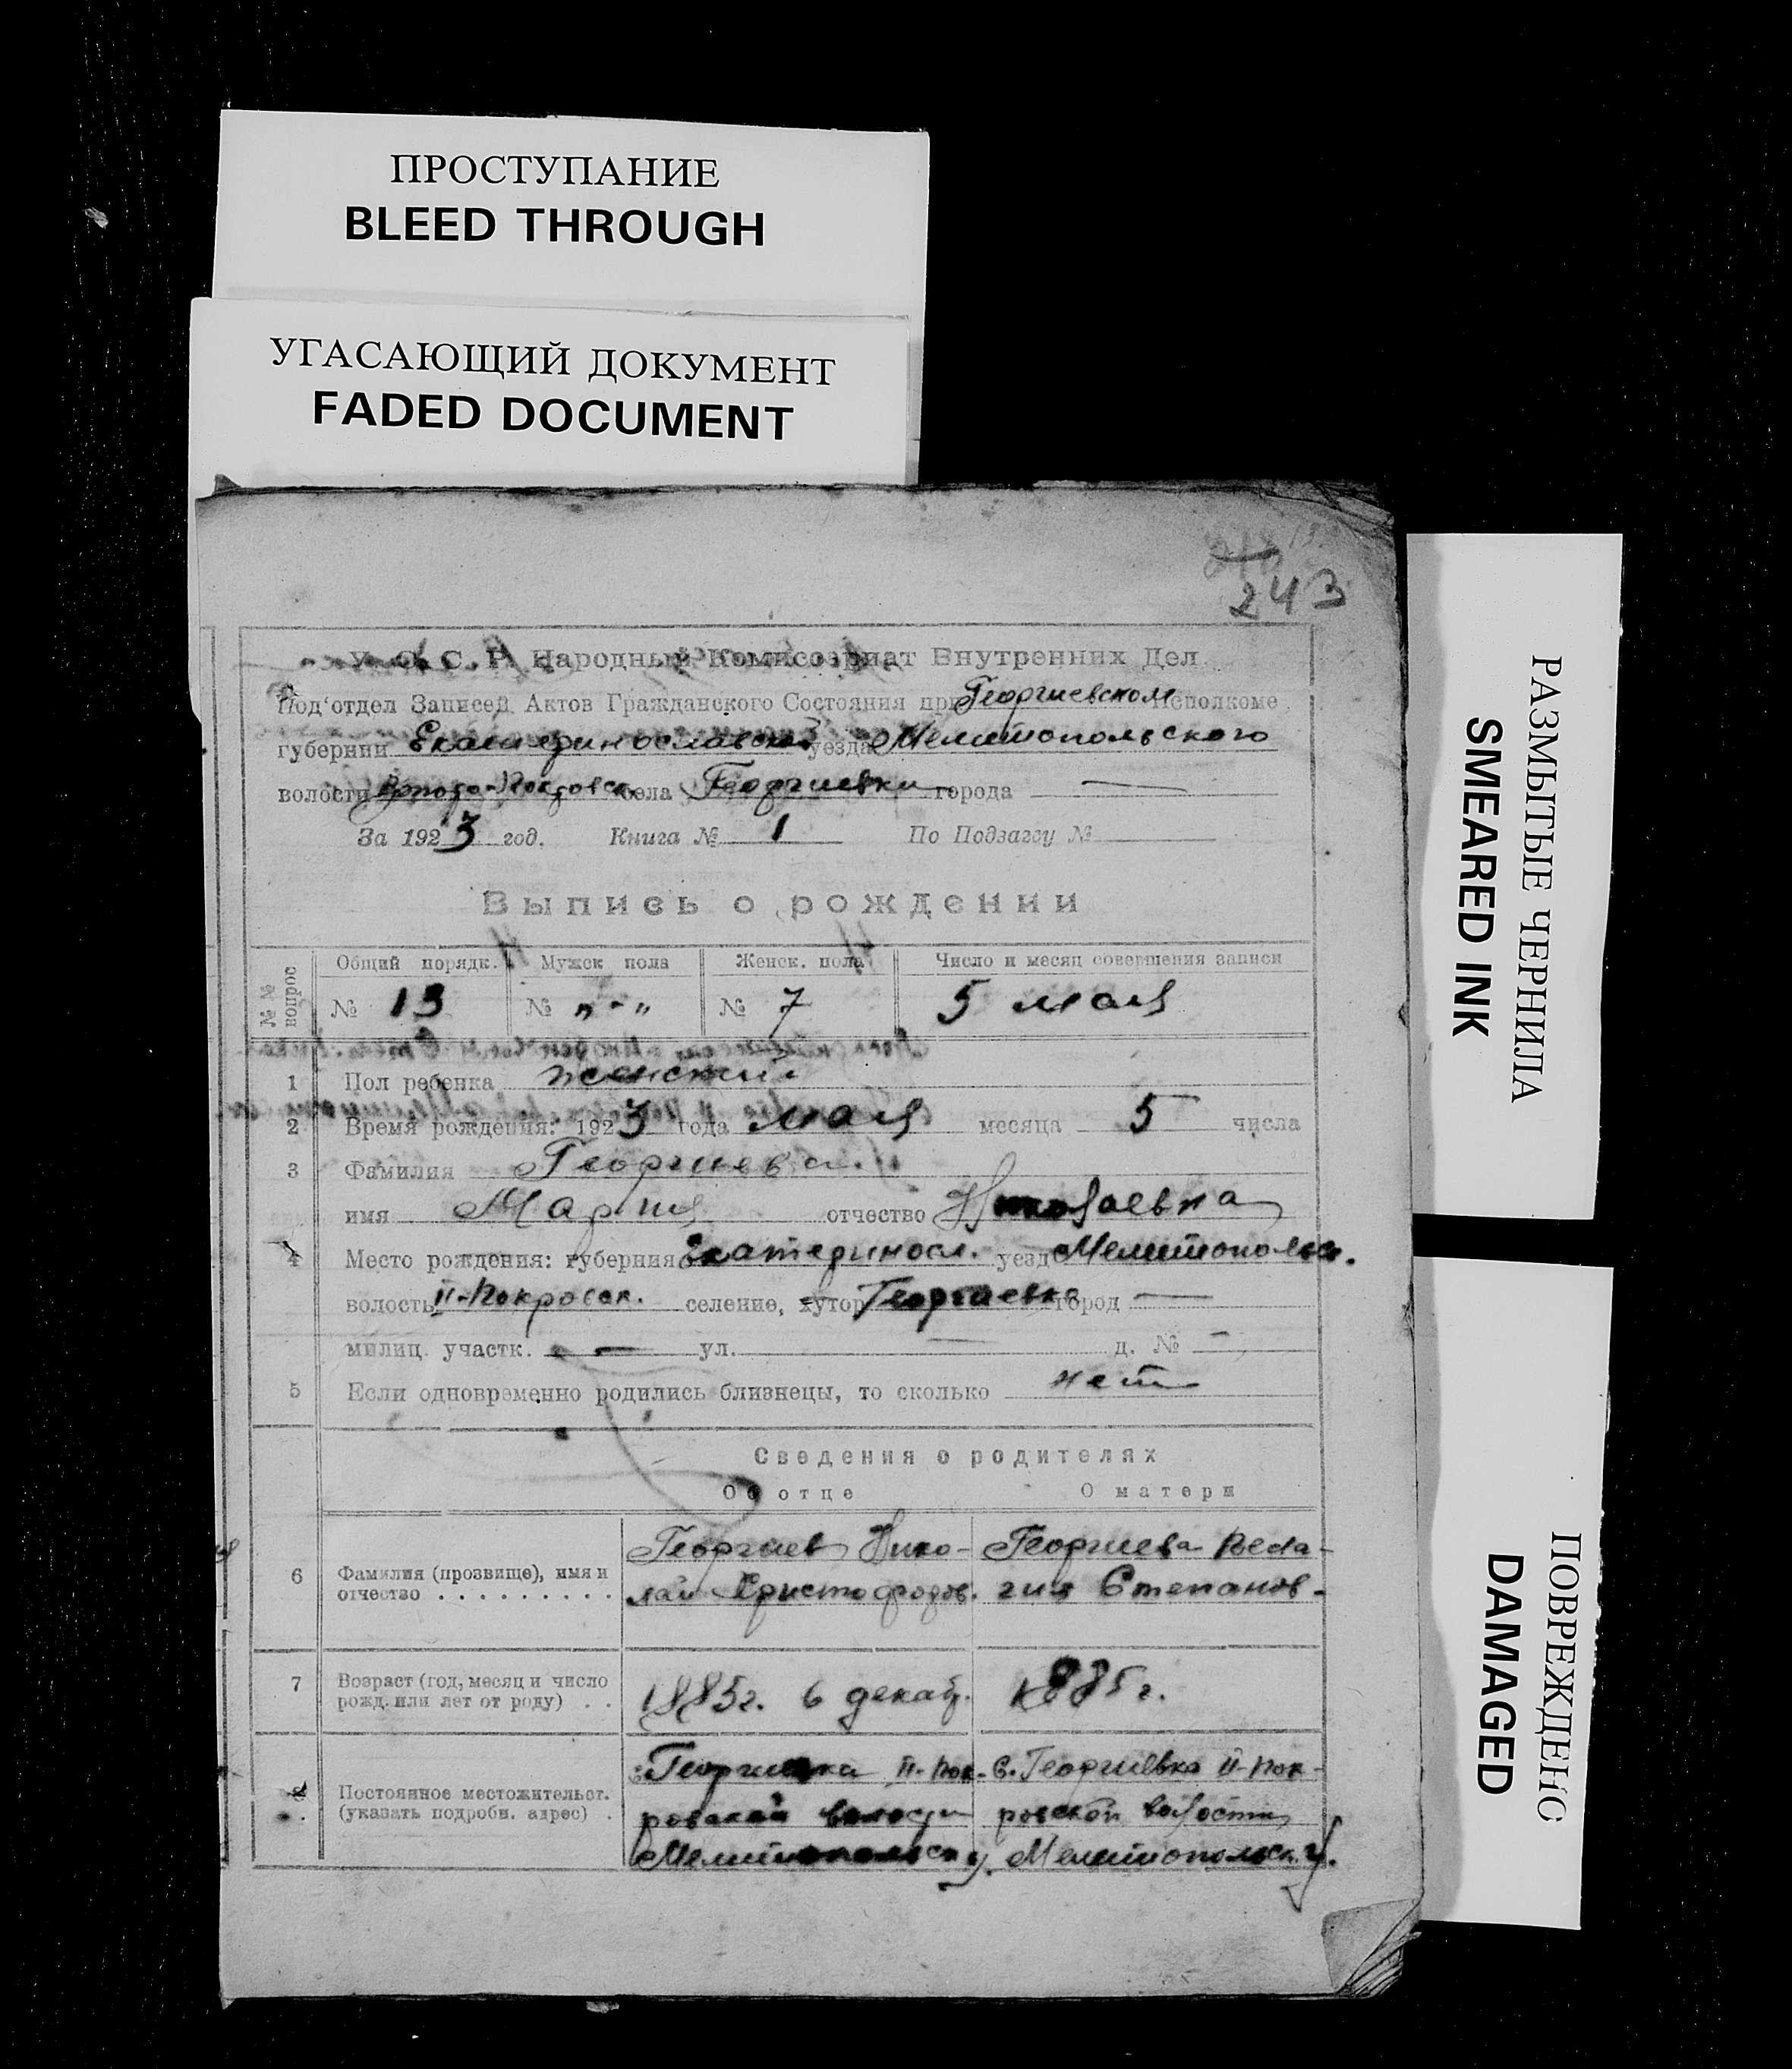 ПРОСТУПАНИЕ
BLEED THROUGH
УГАСАЮЩИЙ ДОКУМЕНТ
FADED DOCUMENT
243
У. С. С. Р. Народный Комиссариат Внутренних Дел
Под‘отдел Записей Актов Гражданского Состояния при Георгиевском Исполкоме
губернии Екатеринославской уезда Мелитопольского
волости села Георгиевки города —
За 1923 год. Книга № 1 По Подзагсу №
Выпись о рождении
№№ вопрос
Общий порядк. Мужск пола Женск. пола Число и месяц совершения записи
№ 13 № „-“ № 7 5 мая
1 Пол ребенка женский
2 Время рождения: 1923 года мая месяца 5 числа
3 Фамилия Георгиева
имя Мария отчество Николаевна
4 Место рождения: губерния Екатеринosл. уезд Мелитопольск.
волость II-Покровск. селение, хутор Георгиевка город —
милиц. участк. — ул. — д. № —
5 Если одновременно родились близнецы, то сколько нет
Сведения о родителях
Об отце О матери
6 Фамилия (прозвище), имя и отчество . . . . . . . . .
Георгиев Нико-
лай Христофоров.
Георгиева Пела-
гия Степанов-
7 Возраст (год, месяц и число рожд. или лет от роду) . .
1885г. 6 декаб.
1885г.
8 Постоянное местожительст. (указать подробн. адрес) .
с. Георгиевка II-Пок-
ровской волости
Мелитопольск у.
с. Георгиевка II-Пок-
ровской волости
Мелитопольск. у.
РАЗМЫТЫЕ ЧЕРНИЛА
SMEARED INK
ПОВРЕЖДЕНО
DAMAGED